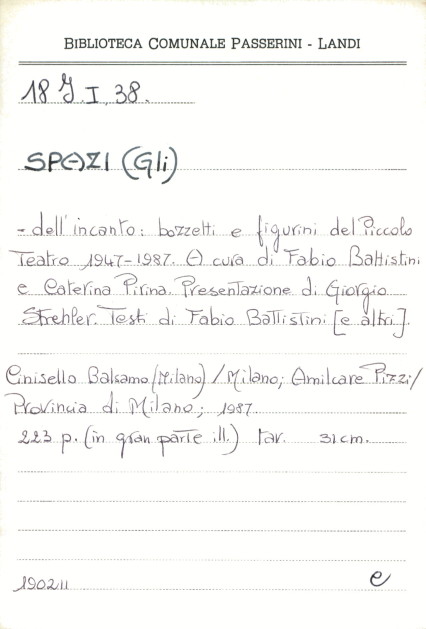 BIBLIOTECA COMUNALE PASSERINI - LANDI
18 J. I. 38.
SPAZI (Gli)
- dell'incanto: bozzetti e figurini del Piccolo
Teatro 1947-1987. A cura di Fabio Battistini
e Caterina Pirina. Presentazione di Giorgio
Strehler. Testi di Fabio Battistini [e altri].
Cinisello Balsamo (Milano) / Milano; Amilcare Pizzi/
Provincia di Milano; 1987.
223 p. (in gran parte ill.) tav. 31 cm.
190211 e